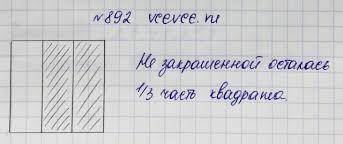 №892 vcevce.ru
Не закрашенной осталась
1/3 часть квадрата